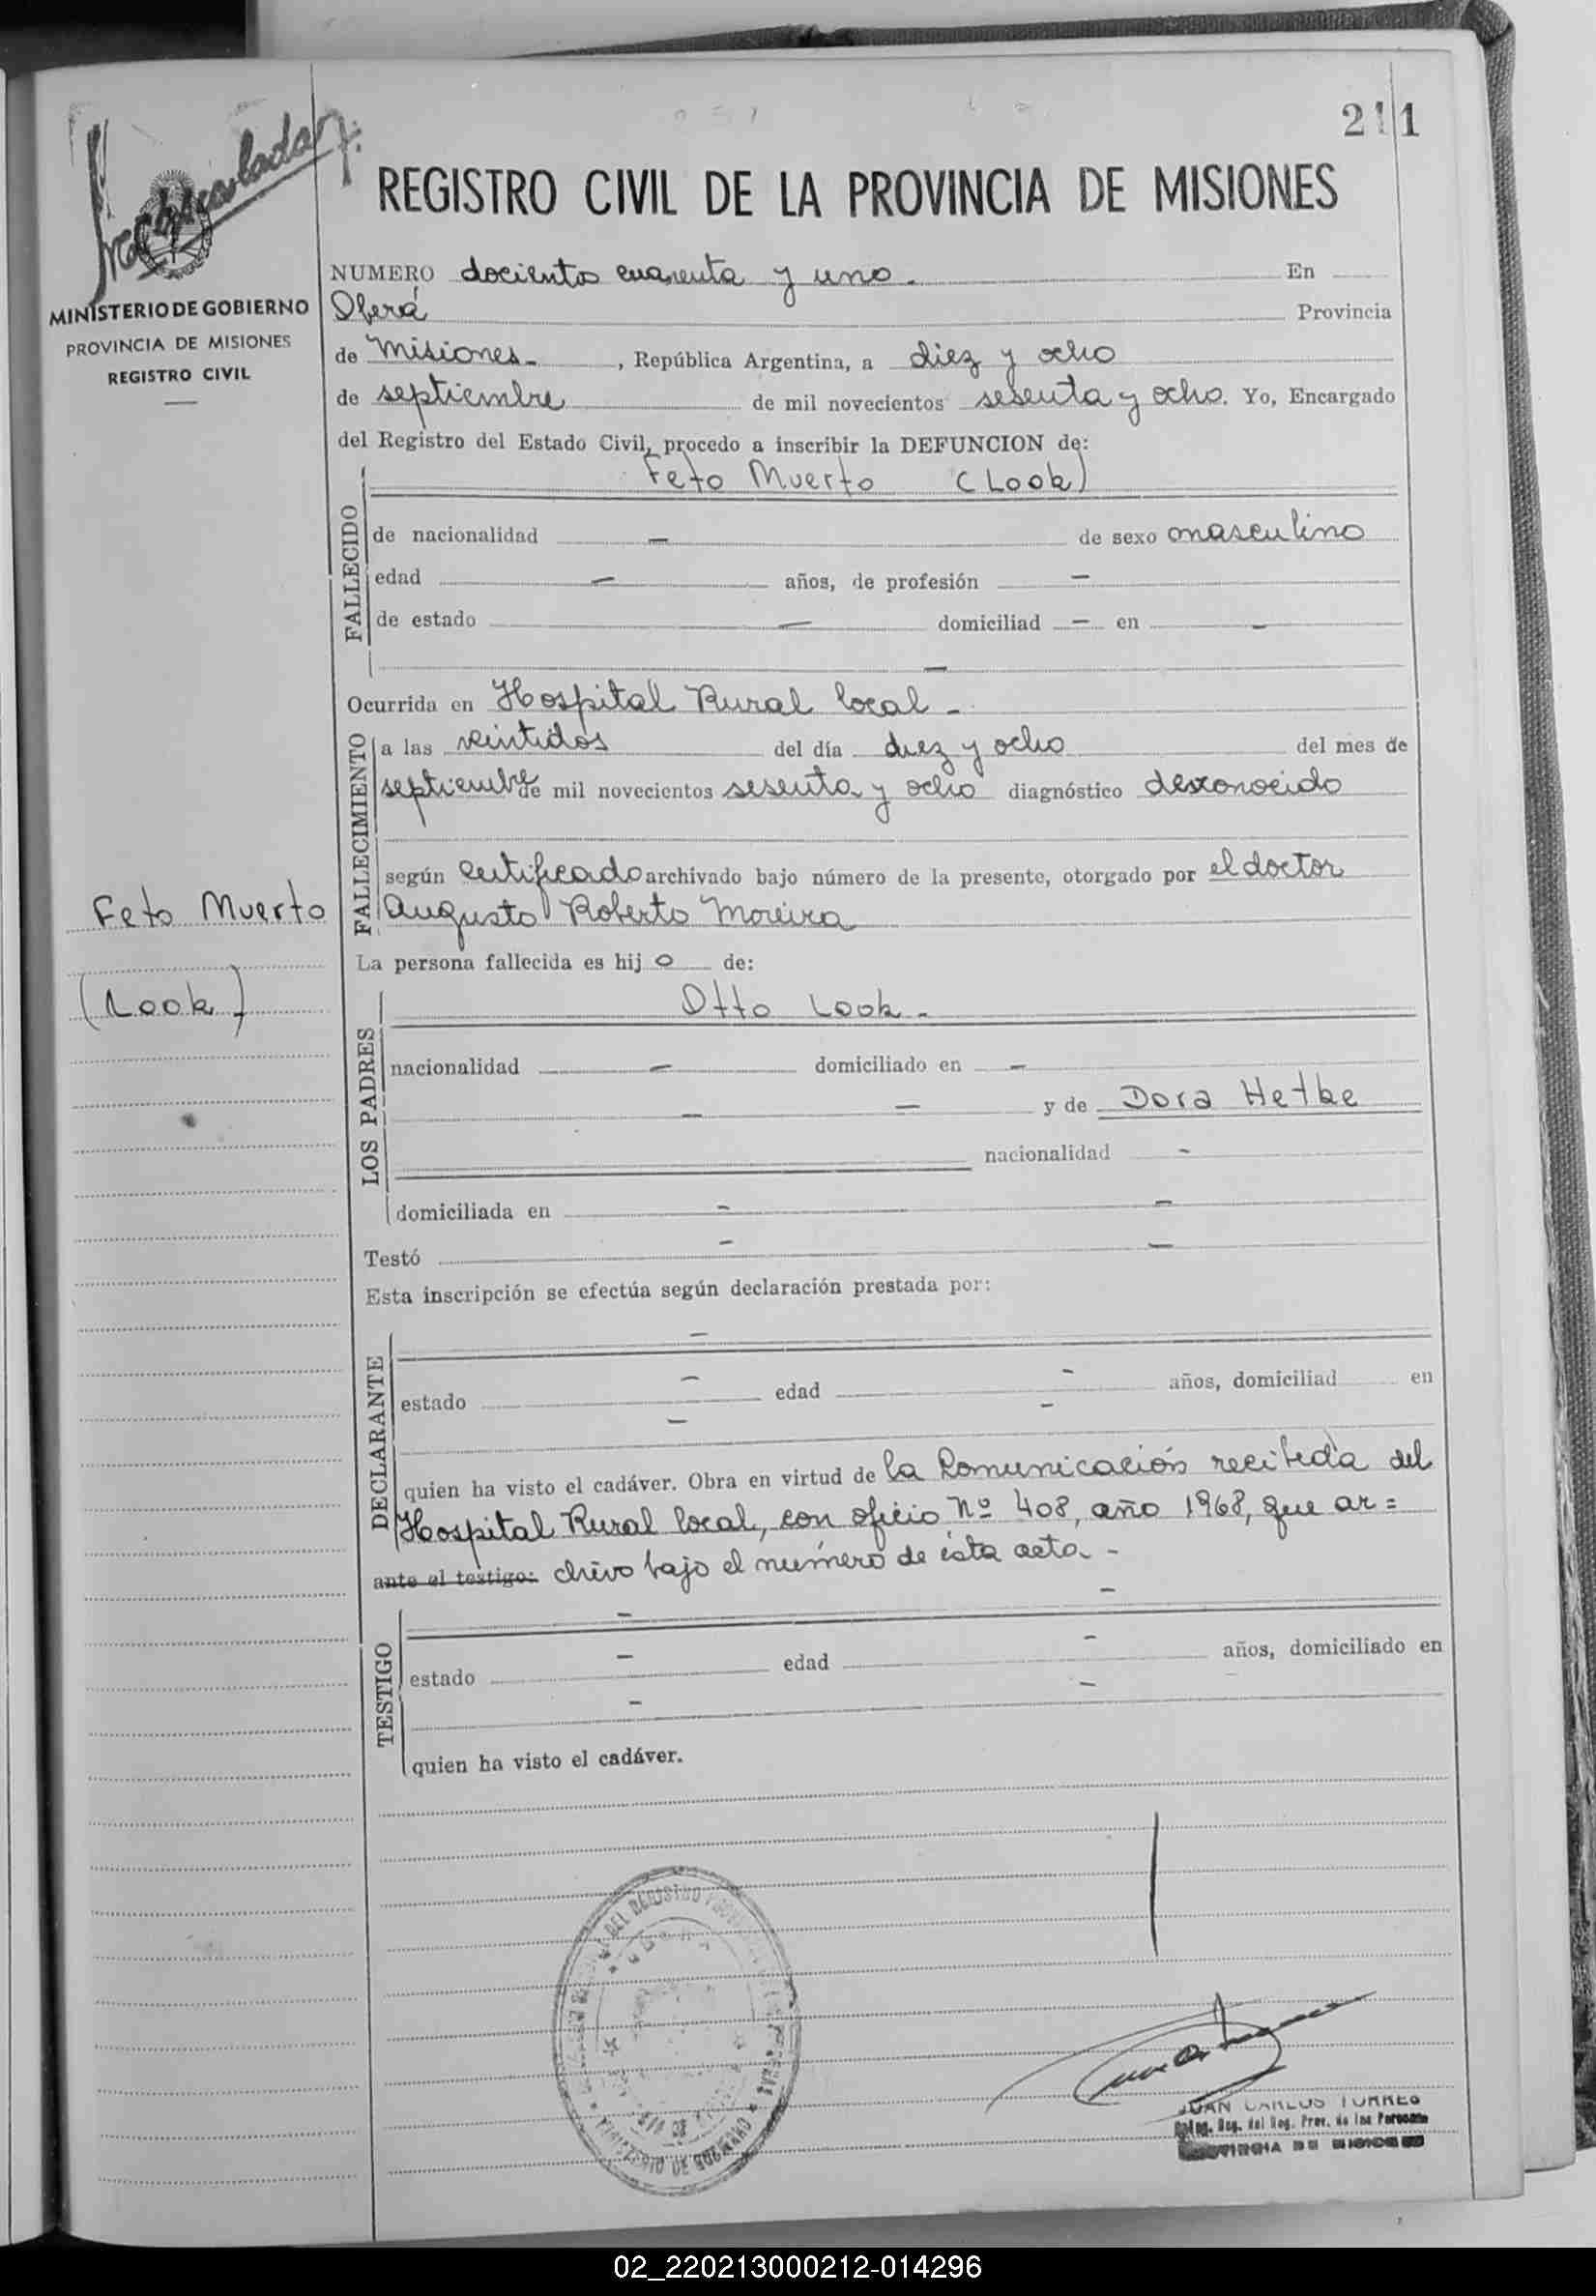 211
REGISTRO CIVIL DE LA PROVINCIA DE MISIONES
MINISTERIO DE GOBIERNO
PROVINCIA DE MISIONES
REGISTRO CIVIL
NUMERO dociento cuarenta y uno. En
Oberá Provincia
de Misiones, República Argentina, a diez y ocho
de septiembre de mil novecientos sesenta y ocho. Yo, Encargado
del Registro del Estado Civil, procedo a inscribir la DEFUNCION de:
Feto Muerto (Look)
FALLECIDO
de nacionalidad — de sexo masculino
edad — años, de profesión —
de estado — domiciliad — en —
—
Ocurrida en Hospital Rural local -
FALLECIMIENTO
a las veintidos del día diez y ocho del mes de
septiembre de mil novecientos sesenta y ocho diagnóstico desconocido
según certificado archivado bajo número de la presente, otorgado por el doctor
Augusto Roberto Moreira
Feto Muerto
(Look)
La persona fallecida es hij o de:
LOS PADRES
Otto Look -
nacionalidad — domiciliado en —
— — y de Dora Hetke
nacionalidad -
domiciliada en - -
Testó - -
Esta inscripción se efectúa según declaración prestada por:
DECLARANTE
-
estado - edad - años, domiciliad en
- -
quien ha visto el cadáver. Obra en virtud de la Comunicación recibida del
Hospital Rural local, con oficio Nº 408, año 1968, que ar=
ante el testigo: chivo bajo el número de ésta acta -
TESTIGO
- -
estado - edad - años, domiciliado en
- -
quien ha visto el cadáver.
JUAN CARLOS TORRES
Reg. del Reg. Prov. de las Personas
PROVINCIA DE MISIONES
02_220213000212-014296